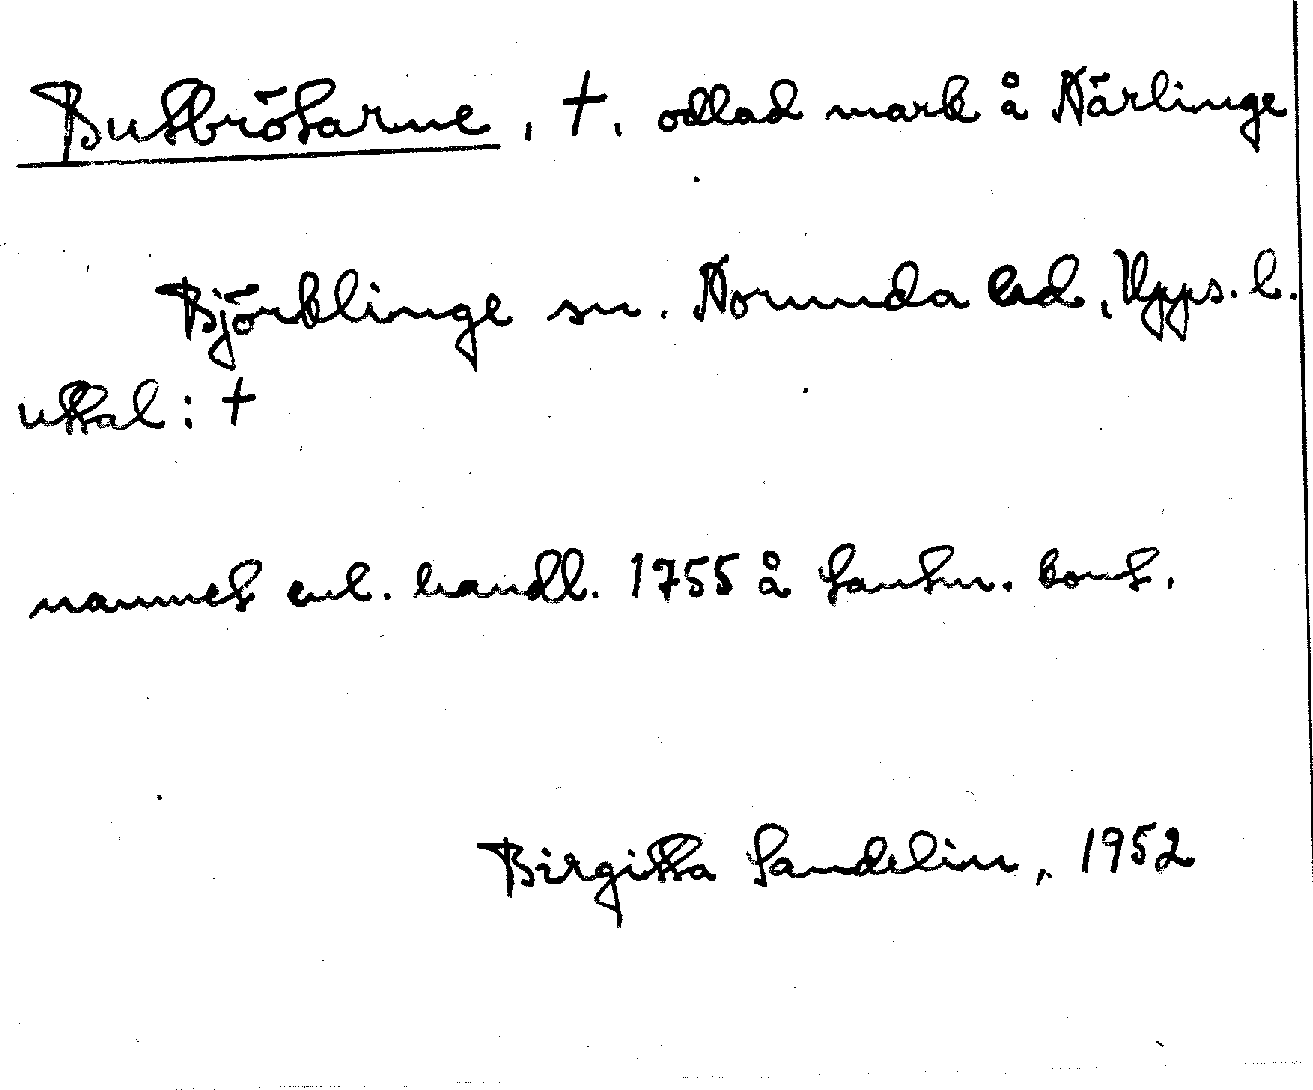 Butbrötarne, †, odlad mark å Närlinge
Björklinge sn. Norunda hd, Upps. l.
uttal: †
namnet enl. handl. 1755 å lantm. kont.
Birgitta Sandelin, 1952